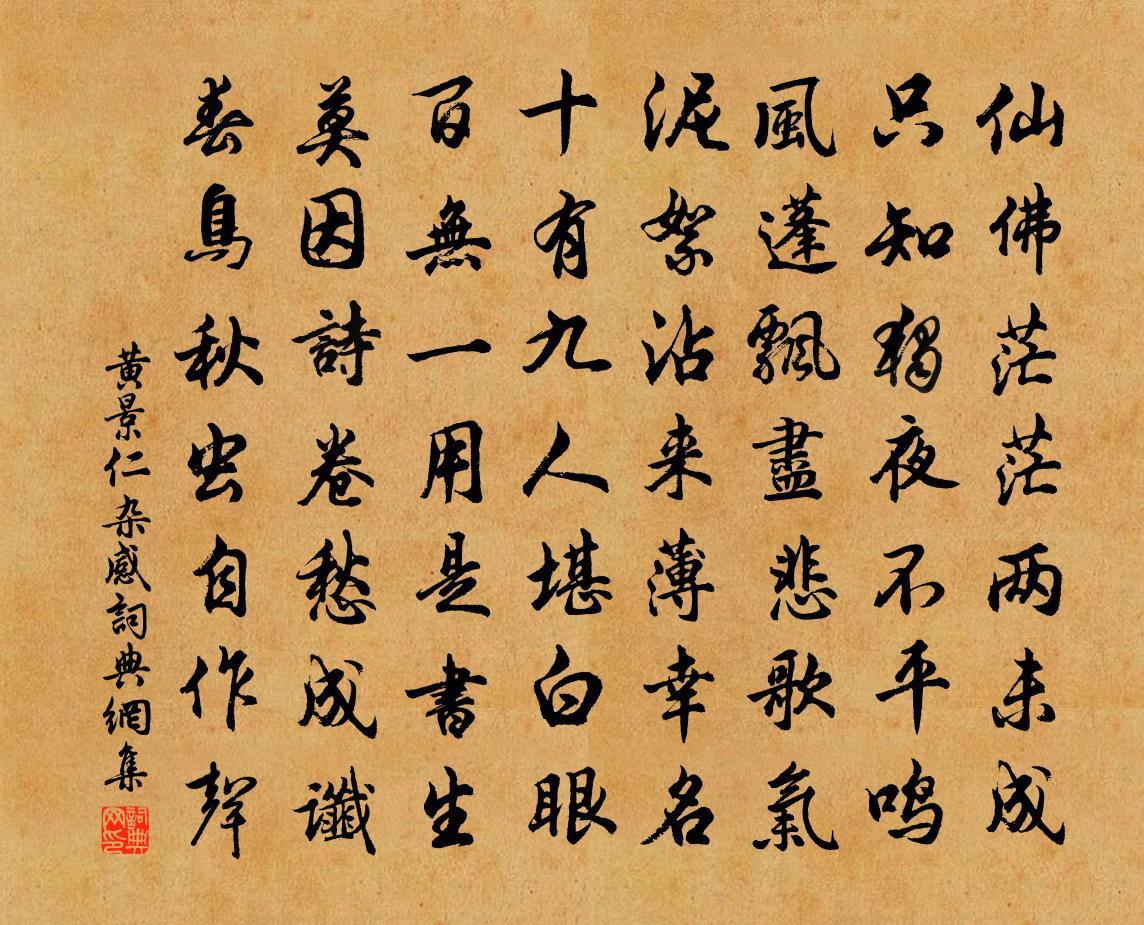 仙佛茫茫两未成
只知獨夜不平鳴
風蓬飄盡悲歌氣
泥絮沾来薄幸名
十有九人堪白眼
百無一用是書生
莫因詩卷愁成讖
春鳥秋虫自作聲
黄景仁杂感詞典網集
詞典网印